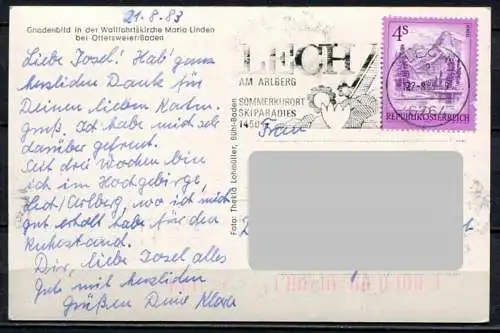 21.8.83
Gnadenbild in der Wallfahrtskirche Maria Linden
bei Ottersweier/Baden
Liebe Josel! Hab' ganz
herzlichen Dank für
Deinen lieben Karten-
gruß. Ich habe mich sehr
darüber gefreut.
Seit drei Wochen bin
ich im Hochgebirge,
Lech/Arlberg, wo ich mich
gut erholt habe für den
Ruhestand.
Dir, liebe Josel alles
Gute mit herzlichen
Grüßen Deine Klara
Foto: Thekla Lohmüller, Bühl-Baden
LECH
AM ARLBERG
SOMMERKURORT
SKIPARADIES
1450
Frau
4S
REPUBLIK ÖSTERREICH
6764